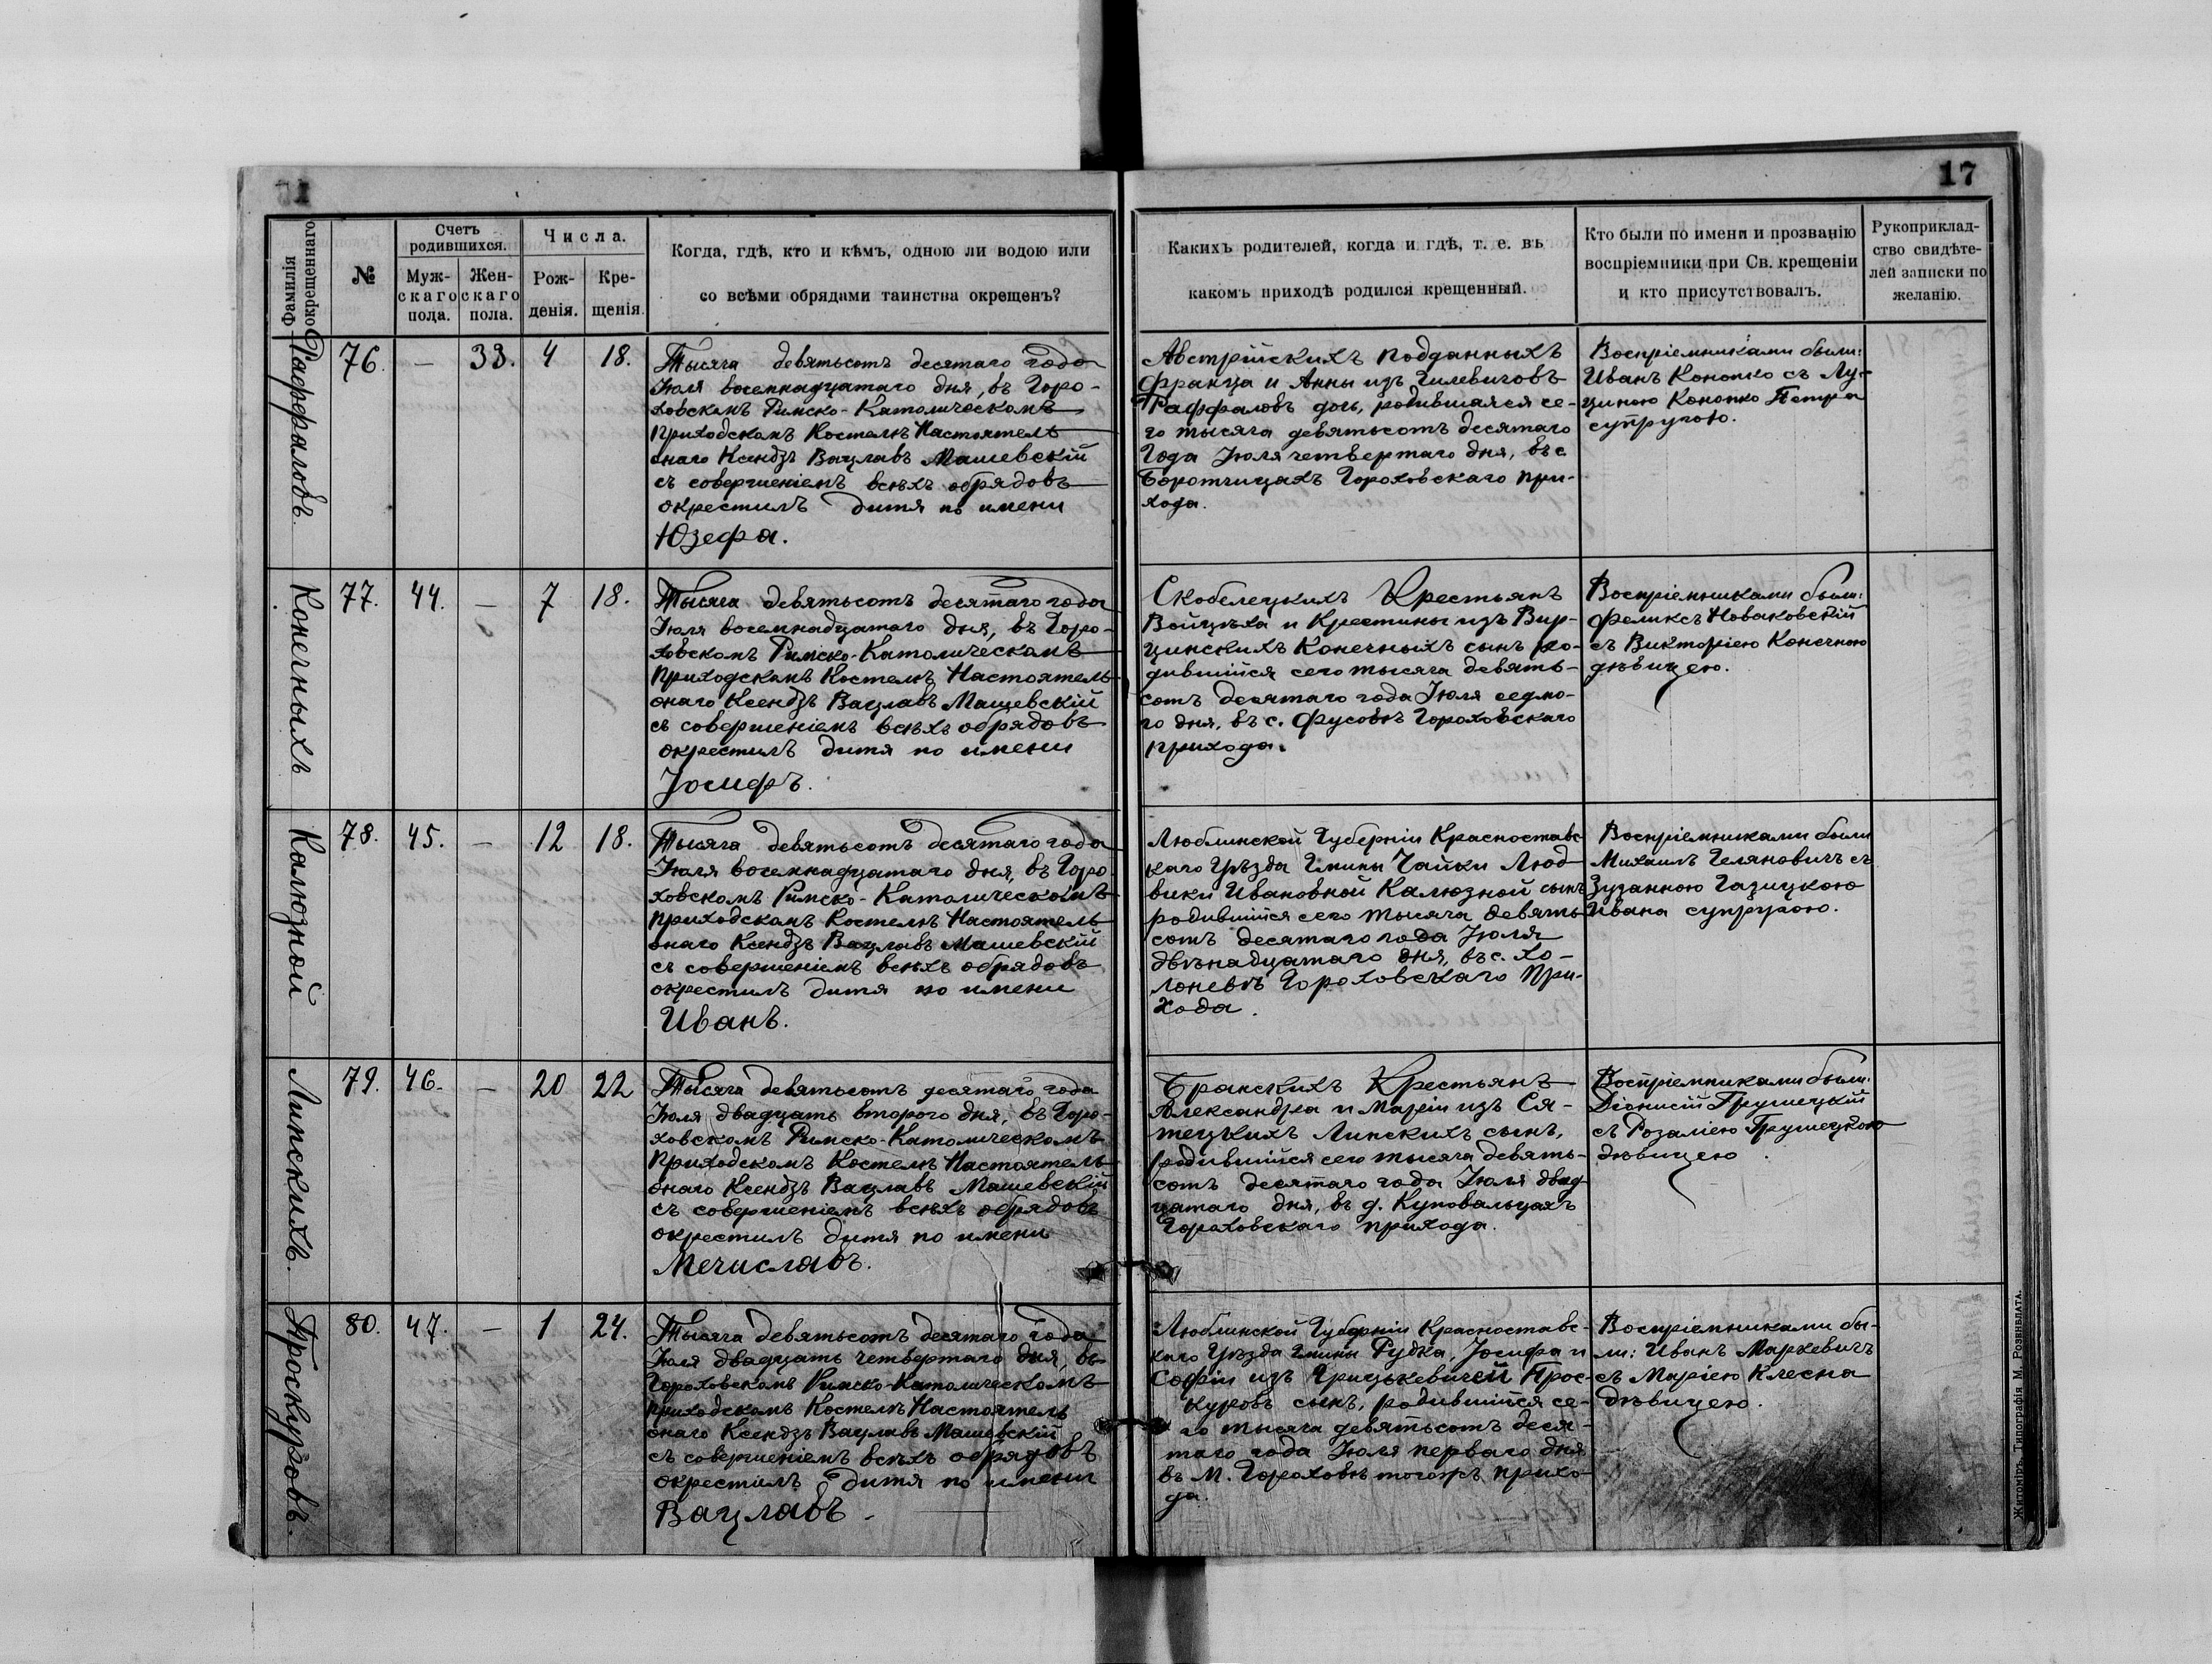 17
Фамилія окрещеннаго
№
Счетъ родившихся.
Мужскаго пола.
Женскаго пола.
Числа.
Рожденія.
Крещенія.
Когда, гдѣ, кто и кѣмъ, одною ли водою или
со всѣми обрядами таинства окрещенъ?
Какихъ родителей, когда и гдѣ, т. е. въ
какомъ приходѣ родился крещенный.
Кто были по имени и прозванію
воспріемники при Св. крещеніи
и кто присутствовалъ.
Рукоприклад-
ство свидѣте-
лей записки по
желанію.
Раффаловъ.
76. — 33. 4 18.
Тысяча девятьсотъ десятаго года
Іюля восемнадцатаго дня, въ Горо-
ховскомъ Римско-Католическомъ
приходскомъ Костелѣ Настоятель
онаго Ксендзъ Вацлавъ Машевскій
съ совершеніемъ всѣхъ обрядовъ
окрестилъ дитя по имени
Юзефа.
Австрійскихъ подданныхъ
Франца и Анны изъ Гилевичовъ
Раффаловъ дочь, родившаяся се-
го тысяча девятьсотъ десятаго
года Іюля четвертаго дня, въ с.
Боротчицахъ Гороховскаго при-
хода.
Воспріемниками были:
Иванъ Конопко съ Лу-
циною Конопко Петра
супругою.
Конечныхъ
77. 44. — 7 18.
Тысяча девятьсотъ десятаго года
Іюля восемнадцатаго дня, въ Горо-
ховскомъ Римско-Католическомъ
приходскомъ Костелѣ Настоятель
онаго Ксендзъ Вацлавъ Машевскій
съ совершеніемъ всѣхъ обрядовъ
окрестилъ дитя по имени
Іосифъ.
Скобелецкихъ Крестьянъ
Войцѣха и Крестины изъ Вир-
цинскихъ Конечныхъ сынъ ро-
дившійся сего тысяча девять-
сотъ десятаго года Іюля седмо-
го дня, въ с. Фусовѣ Гороховскаго
прихода.
Воспріемниками были:
Феликсъ Новаковскій
съ Викторіею Конечною
дѣвицею.
Калюзной
78. 45. — 12 18.
Тысяча девятьсотъ десятаго года
Іюля восемнадцатаго дня, въ Горо
ховскомъ Римско-Католическомъ
приходскомъ Костелѣ Настоятель
онаго Ксендзъ Вацлавъ Машевскій
съ совершеніемъ всѣхъ обрядовъ
окрестилъ дитя по имени
Иванъ.
Люблинской Губерніи Красноставс-
каго Уѣзда Гмины Чайки Люд
вики Ивановной Калюзной сынъ
родившійся сего тысяча девять
сотъ десятаго года Іюля
двѣнадцатаго дня, въ с. Хо-
лоневѣ Гороховскаго при-
хода.
Воспріемниками были
Михаилъ Геляновичъ съ
Зузанною Газицкою
Ивана супругою.
Липскихъ.
79. 46. — 20 22
Тысяча девятьсотъ десятаго года
Іюля двадцать второго дня, въ Горо-
ховскомъ Римско-Католическомъ
приходскомъ Костелѣ Настоятель
онаго Ксендзъ Вацлавъ Машевскій
съ совершеніемъ всѣхъ обрядовъ
окрестилъ дитя по имени
Мечиславъ.
Бранскихъ Крестьянъ
Александра и Маріи изъ Ся-
тецкихъ Липскихъ сынъ,
родившійся сего тысяча девять-
сотъ десятаго года Іюля двад
цатаго дня, въ д. Куповальцахъ
Гороховскаго прихода.
Воспріемниками были:
Діонисій Грушецкій
съ Розаліею Грушецкою
дѣвицею.
Проскуровъ.
80. 47. — 1 24.
Тысяча девятьсотъ десятаго года
Іюля двадцать четвертаго дня, въ
Гороховскомъ Римско-Католическомъ
приходскомъ Костелѣ Настоятель
онаго Ксендзъ Вацлавъ Машевскій
съ совершеніемъ всѣхъ обрядовъ
окрестилъ дитя по имени
Вацлавъ.
Люблинской Губерніи Красноставс-
каго Уѣзда Гмины Рудка, Іосифа и
Софіи изъ Грицькевичей Прос-
куровъ сынъ, родившійся се-
го тысяча девятьсотъ деся-
таго года Іюля перваго дня
въ М. Гороховѣ тогожъ прихо-
да.
Воспріемниками бы-
ли: Иванъ Маркевичъ
съ Маріею Клесна
дѣвицею.
Житоміръ. Типографія М. Розенблата.